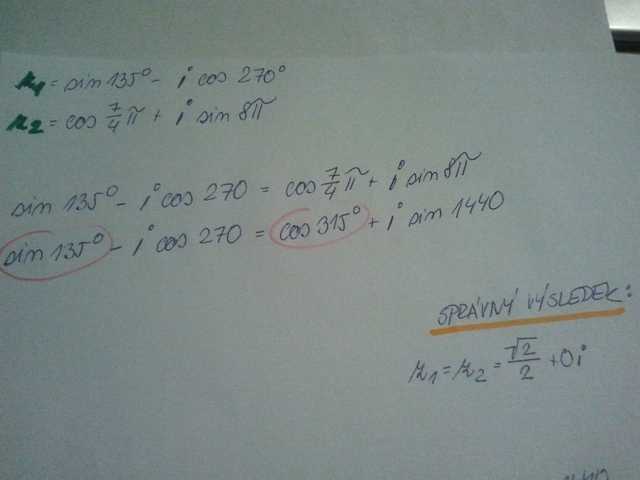 z₁ = sin 135° - i cos 270°
z₂ = cos 7/4 π + i sin 8π
sin 135° - i cos 270 = cos 7/4 π + i sin 8π
sin 135° - i cos 270 = cos 315° + i sin 1440
SPRÁVNÝ VÝSLEDEK:
z₁ = z₂ = √2/2 + 0i